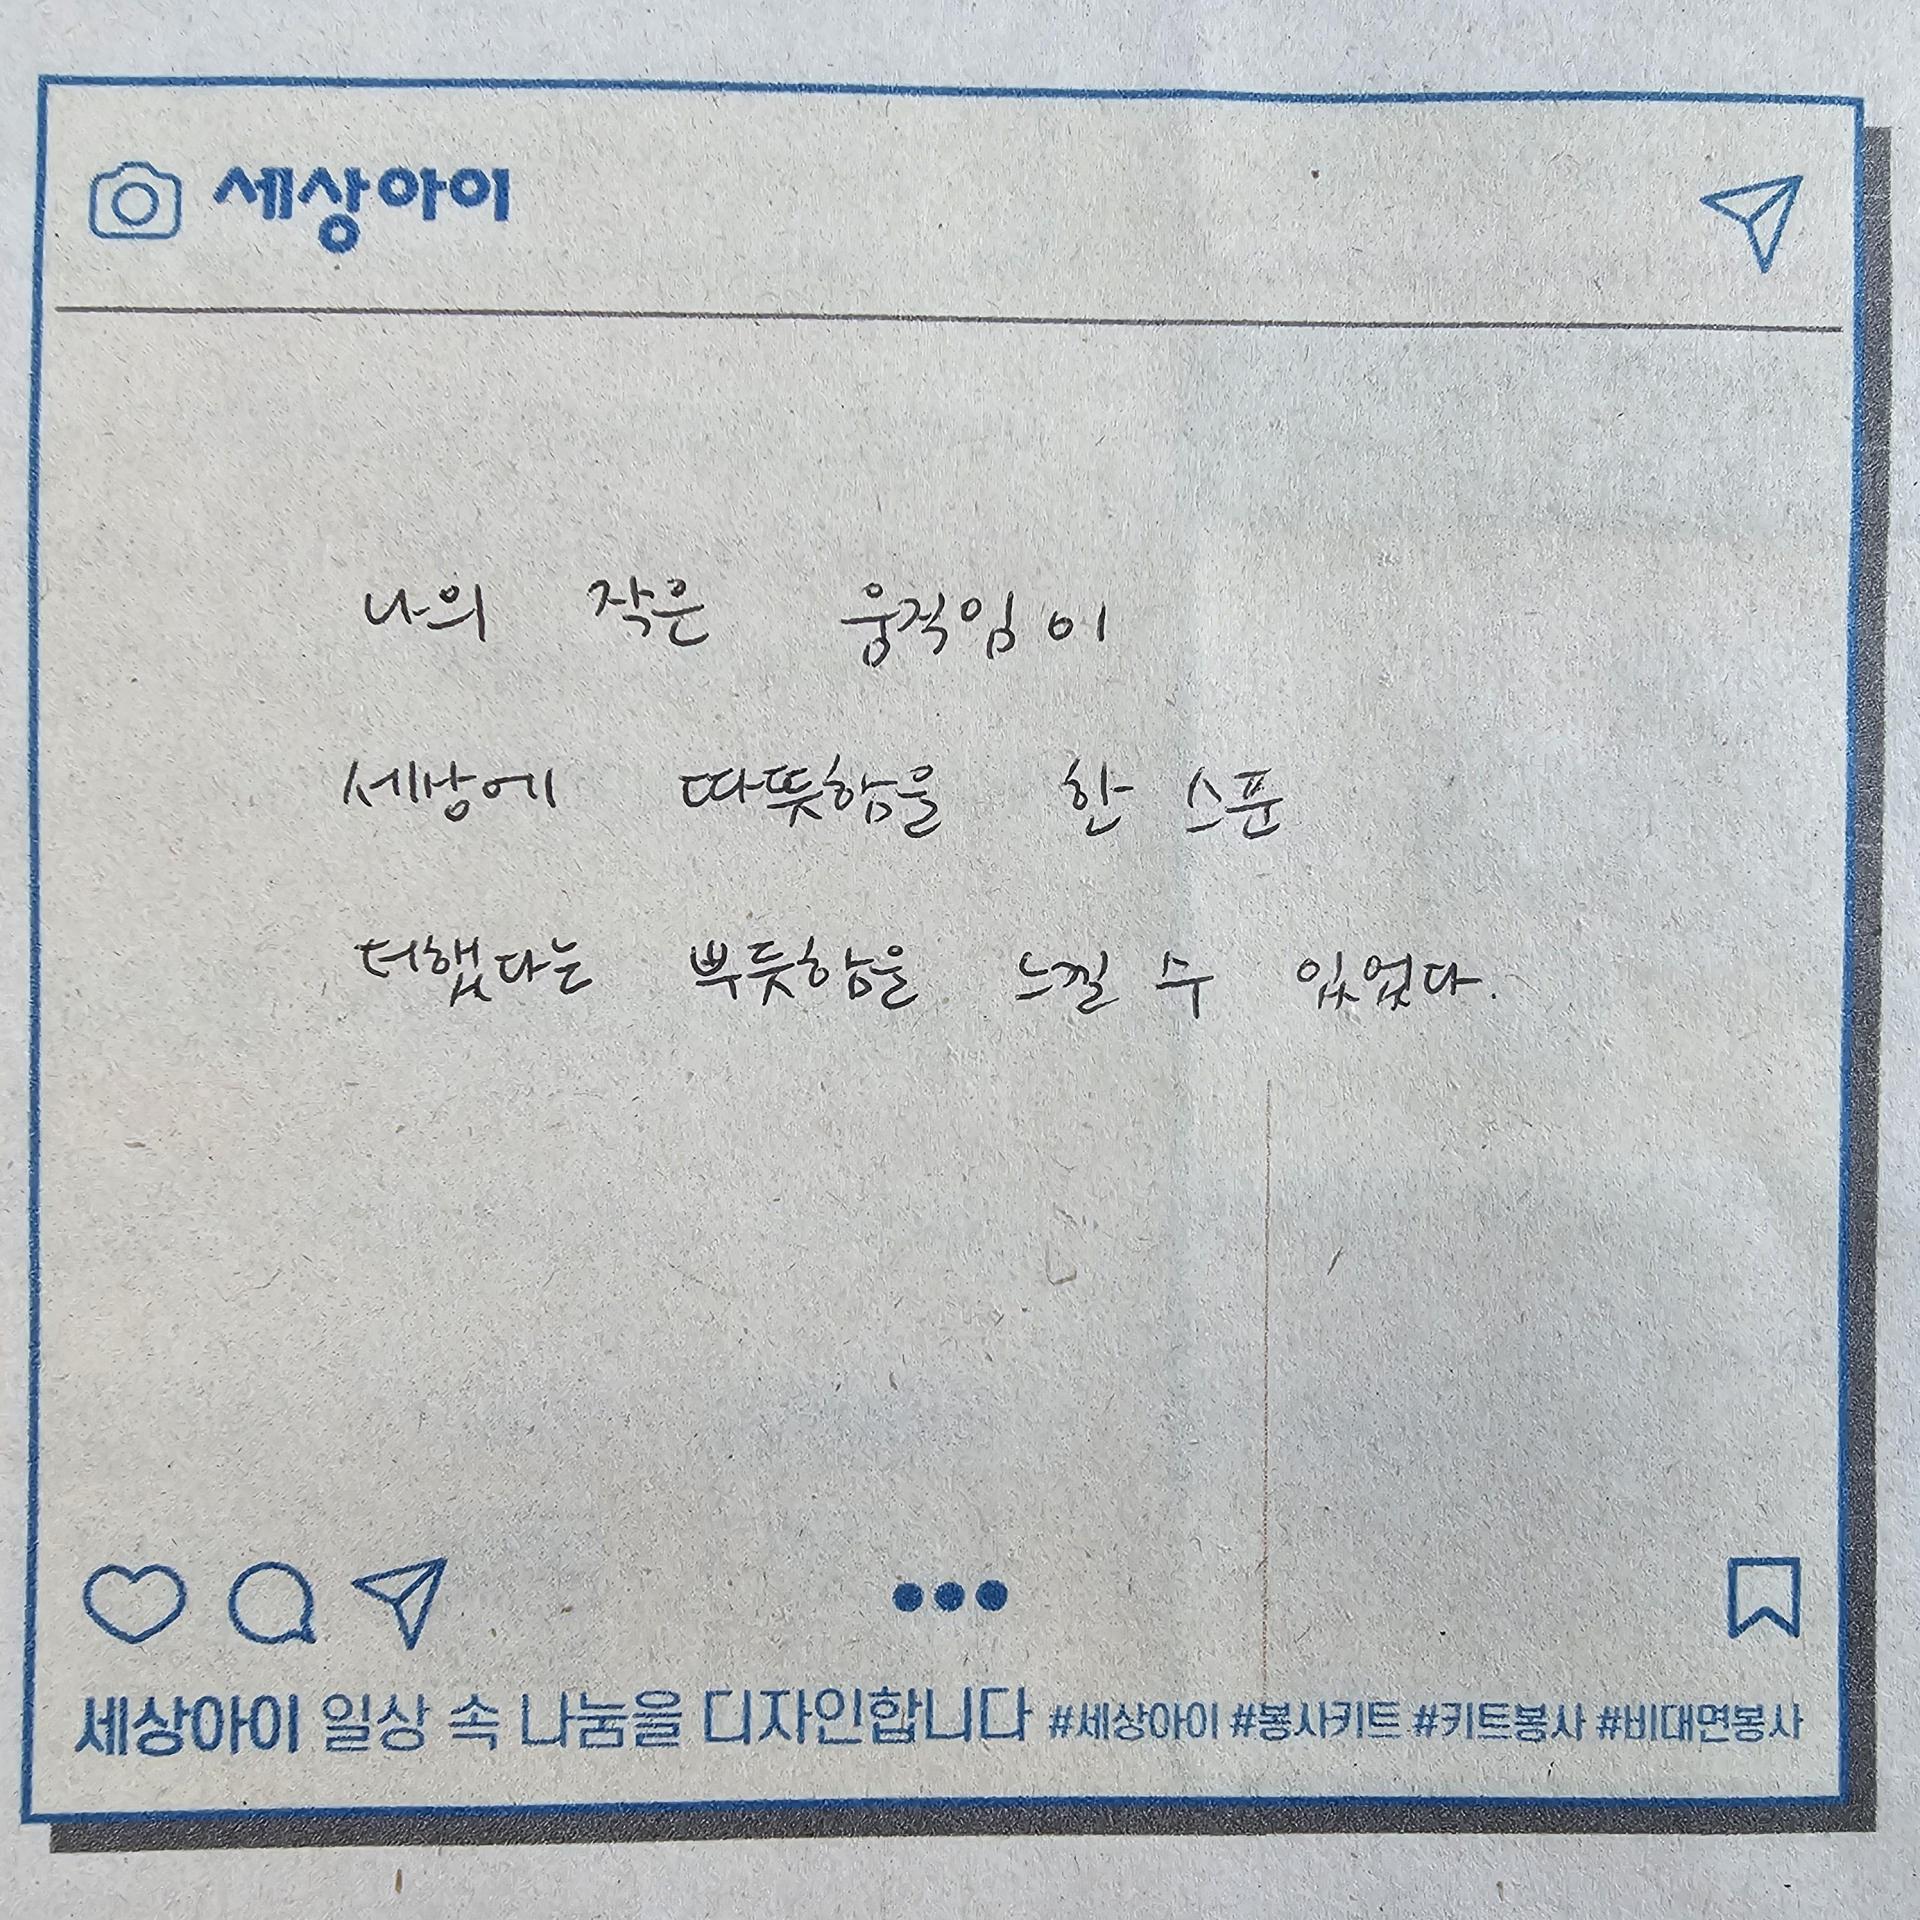 세상아이
나의 작은 움직임이
세상에 따뜻함을 한 스푼
더했다는 뿌듯함을 느낄 수 있었다.
세상아이 일상 속 나눔을 디자인합니다 #세상아이 #봉사키트 #키트봉사 #비대면봉사